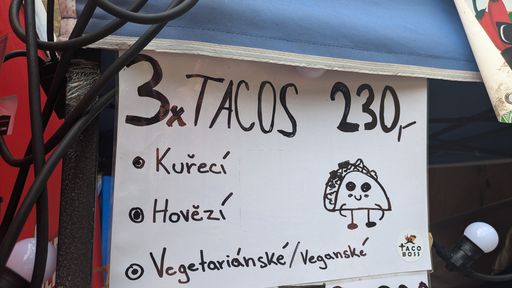 3x TACOS 230,-
• Kuřecí
• Hovězí
• Vegetariánské/Veganské
TACO
BOSS